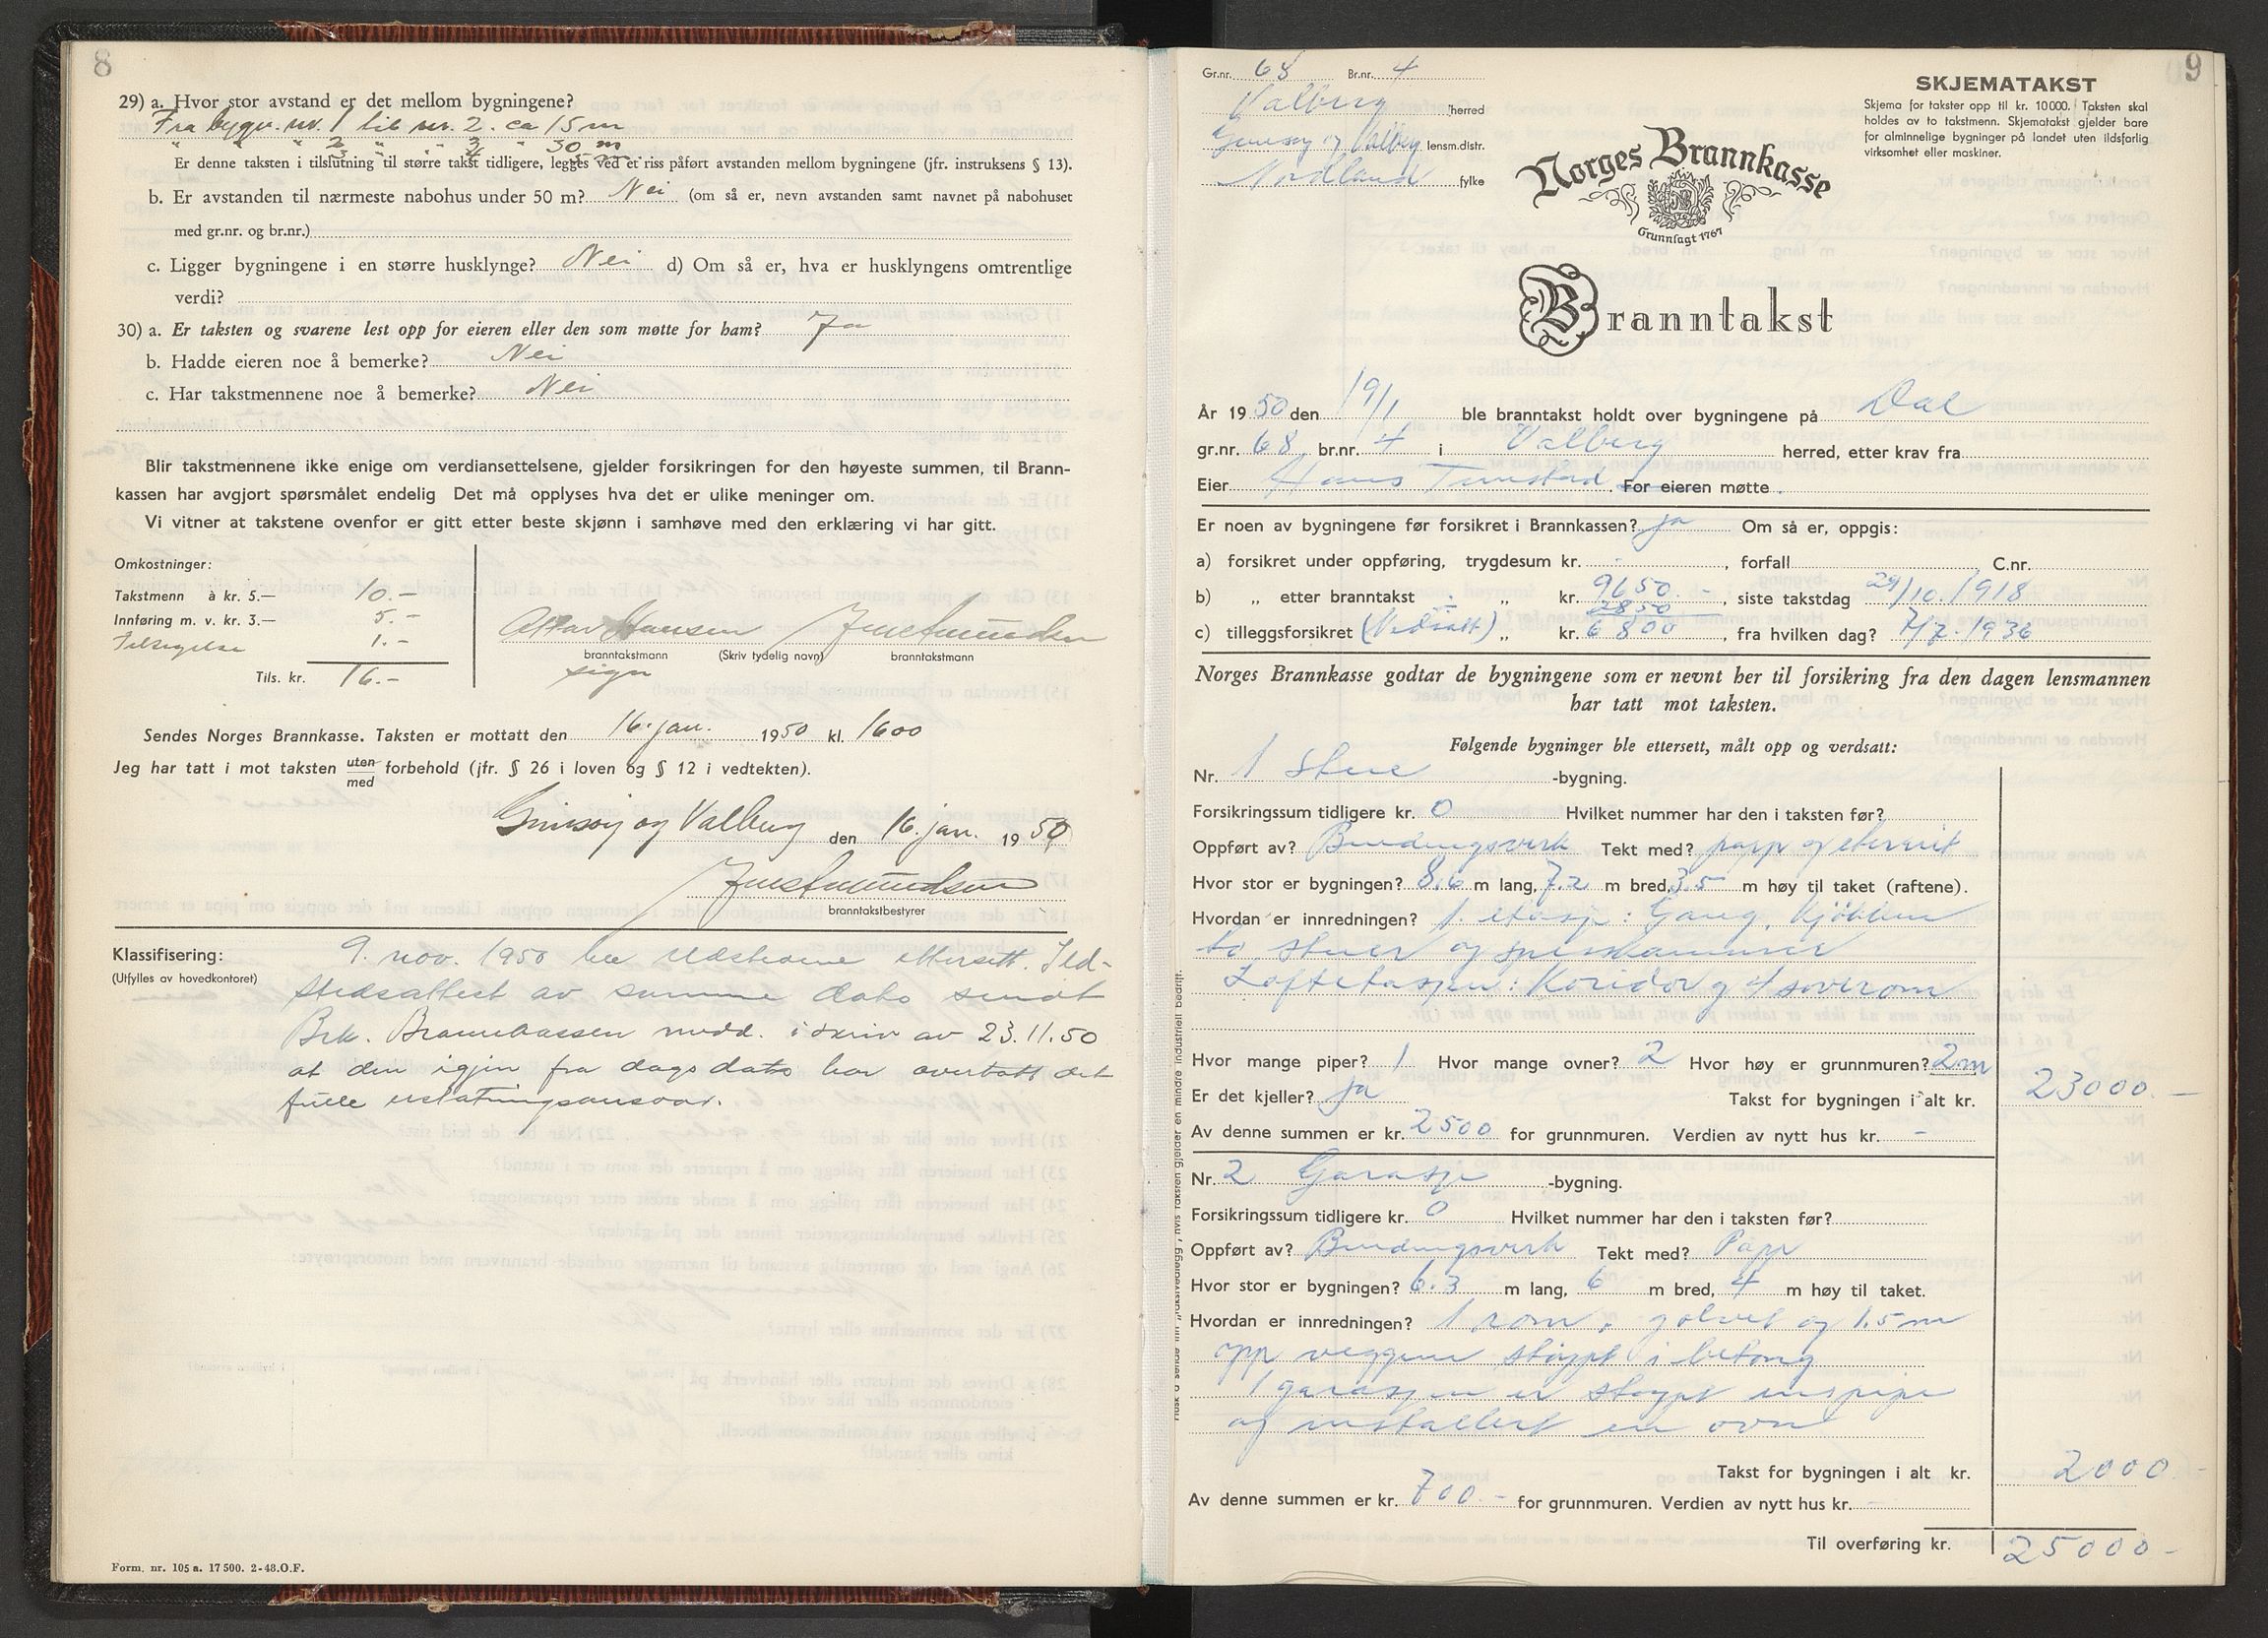 8
29) a. Hvor stor avstand er det mellom bygningene?
Fra bygn. nr. 1 til nr. 2. ca 15 m
" " " 2 " " 3 " 30 m
Er denne taksten i tilslutning til større takst tidligere, legges ved et riss påført avstanden mellom bygningene (jfr. instruksens § 13).
b. Er avstanden til nærmeste nabohus under 50 m? Nei (om så er, nevn avstanden samt navnet på nabohuset
med gr.nr. og br.nr.)
c. Ligger bygningene i en større husklynge? Nei d) Om så er, hva er husklyngens omtrentlige
verdi?
30) a. Er taksten og svarene lest opp for eieren eller den som møtte for ham? Ja
b. Hadde eieren noe å bemerke? Nei
c. Har takstmennene noe å bemerke? Nei
Blir takstmennene ikke enige om verdiansettelsene, gjelder forsikringen for den høyeste summen, til Brann-
kassen har avgjort spørsmålet endelig Det må opplyses hva det er ulike meninger om.
Vi vitner at takstene ovenfor er gitt etter beste skjønn i samhøve med den erklæring vi har gitt.
Omkostninger:
Takstmenn à kr. 5.— 10.-
Innføring m. v. kr. 3.— 5.-
Tilsigelse 1.-
Tils. kr. 16.-
Hansen
branntakstmann (Skriv tydelig navn) branntakstmann
sign
Sendes Norges Brannkasse. Taksten er mottatt den 16. jan. 1950 kl. 1600
Jeg har tatt i mot taksten uten med forbehold (jfr. § 26 i loven og § 12 i vedtekten).
Gimsøy og Valberg den 16. jan. 1950
branntakstbestyrer
Klassifisering:
(Utfylles av hovedkontoret)
9. nov. 1950 ble ildstedene ettersett. Ild-
stedsattest av samme dato sendt
Brk. Brannkassen medd. i skriv av 23.11.50
at den igjen fra dags dato har overtatt det
fulle erstatningsansvar.
Form. nr. 105 a. 17 500. 2-48. O.F.
9
Gr.nr. 68 Br.nr. 4
Valberg herred
Gimsøy og Valberg lensm.distr.
Nordland fylke
SKJEMATAKST
Skjema for takster opp til kr. 10000. Taksten skal
holdes av to takstmenn. Skjematakst gjelder bare
for alminnelige bygninger på landet uten ildsfarlig
virksomhet eller maskiner.
Norges Brannkasse
Grunnlagt 1767
Branntakst
År 1950 den 19/1 ble branntakst holdt over bygningene på Dal
gr.nr. 68 br.nr. 4 i Valberg herred, etter krav fra
Eier Hans Tunstad. For eieren møtte.
Er noen av bygningene før forsikret i Brannkassen? ja Om så er, oppgis:
a) forsikret under oppføring, trygdesum kr. - , forfall , C.nr.
b) „ etter branntakst „ kr. 9650.- , siste takstdag 29/10.1918
2850
c) tilleggsforsikret (Nedsatt) „ kr. 6800 , fra hvilken dag? 7/7.1936
Norges Brannkasse godtar de bygningene som er nevnt her til forsikring fra den dagen lensmannen
har tatt mot taksten.
Følgende bygninger ble ettersett, målt opp og verdsatt:
Nr. 1 Stue -bygning.
Forsikringssum tidligere kr. 0 Hvilket nummer har den i taksten før?
Oppført av? Bindingsverk Tekt med? papp og eternit
Hvor stor er bygningen? 8.6 m lang, 7.2 m bred, 3.5 m høy til taket (raftene).
Hvordan er innredningen? 1. etasje: Gang, kjøkken
to stuer og spiskammer
Loftetasjen: Koridor og 4 soverom
Hvor mange piper? 1 Hvor mange ovner? 2 Hvor høy er grunnmuren? 2 m
Er det kjeller? ja Takst for bygningen i alt kr. 23000.-
Av denne summen er kr. 2500 for grunnmuren. Verdien av nytt hus kr. -
Nr. 2 Garasje -bygning.
Forsikringssum tidligere kr. 0 Hvilket nummer har den i taksten før?
Oppført av? Bindingsverk Tekt med? Papp
Hvor stor er bygningen? 6.3 m lang, 6 m bred, 4 m høy til taket.
Hvordan er innredningen? 1 rom, golvet og 1,5 m
opp veggene støypt i betong
I garasjen er støypt pipe
og installert en ovn
Takst for bygningen i alt kr. 2000.-
Av denne summen er kr. 700.- for grunnmuren. Verdien av nytt hus kr. -
Til overføring kr. 25000-